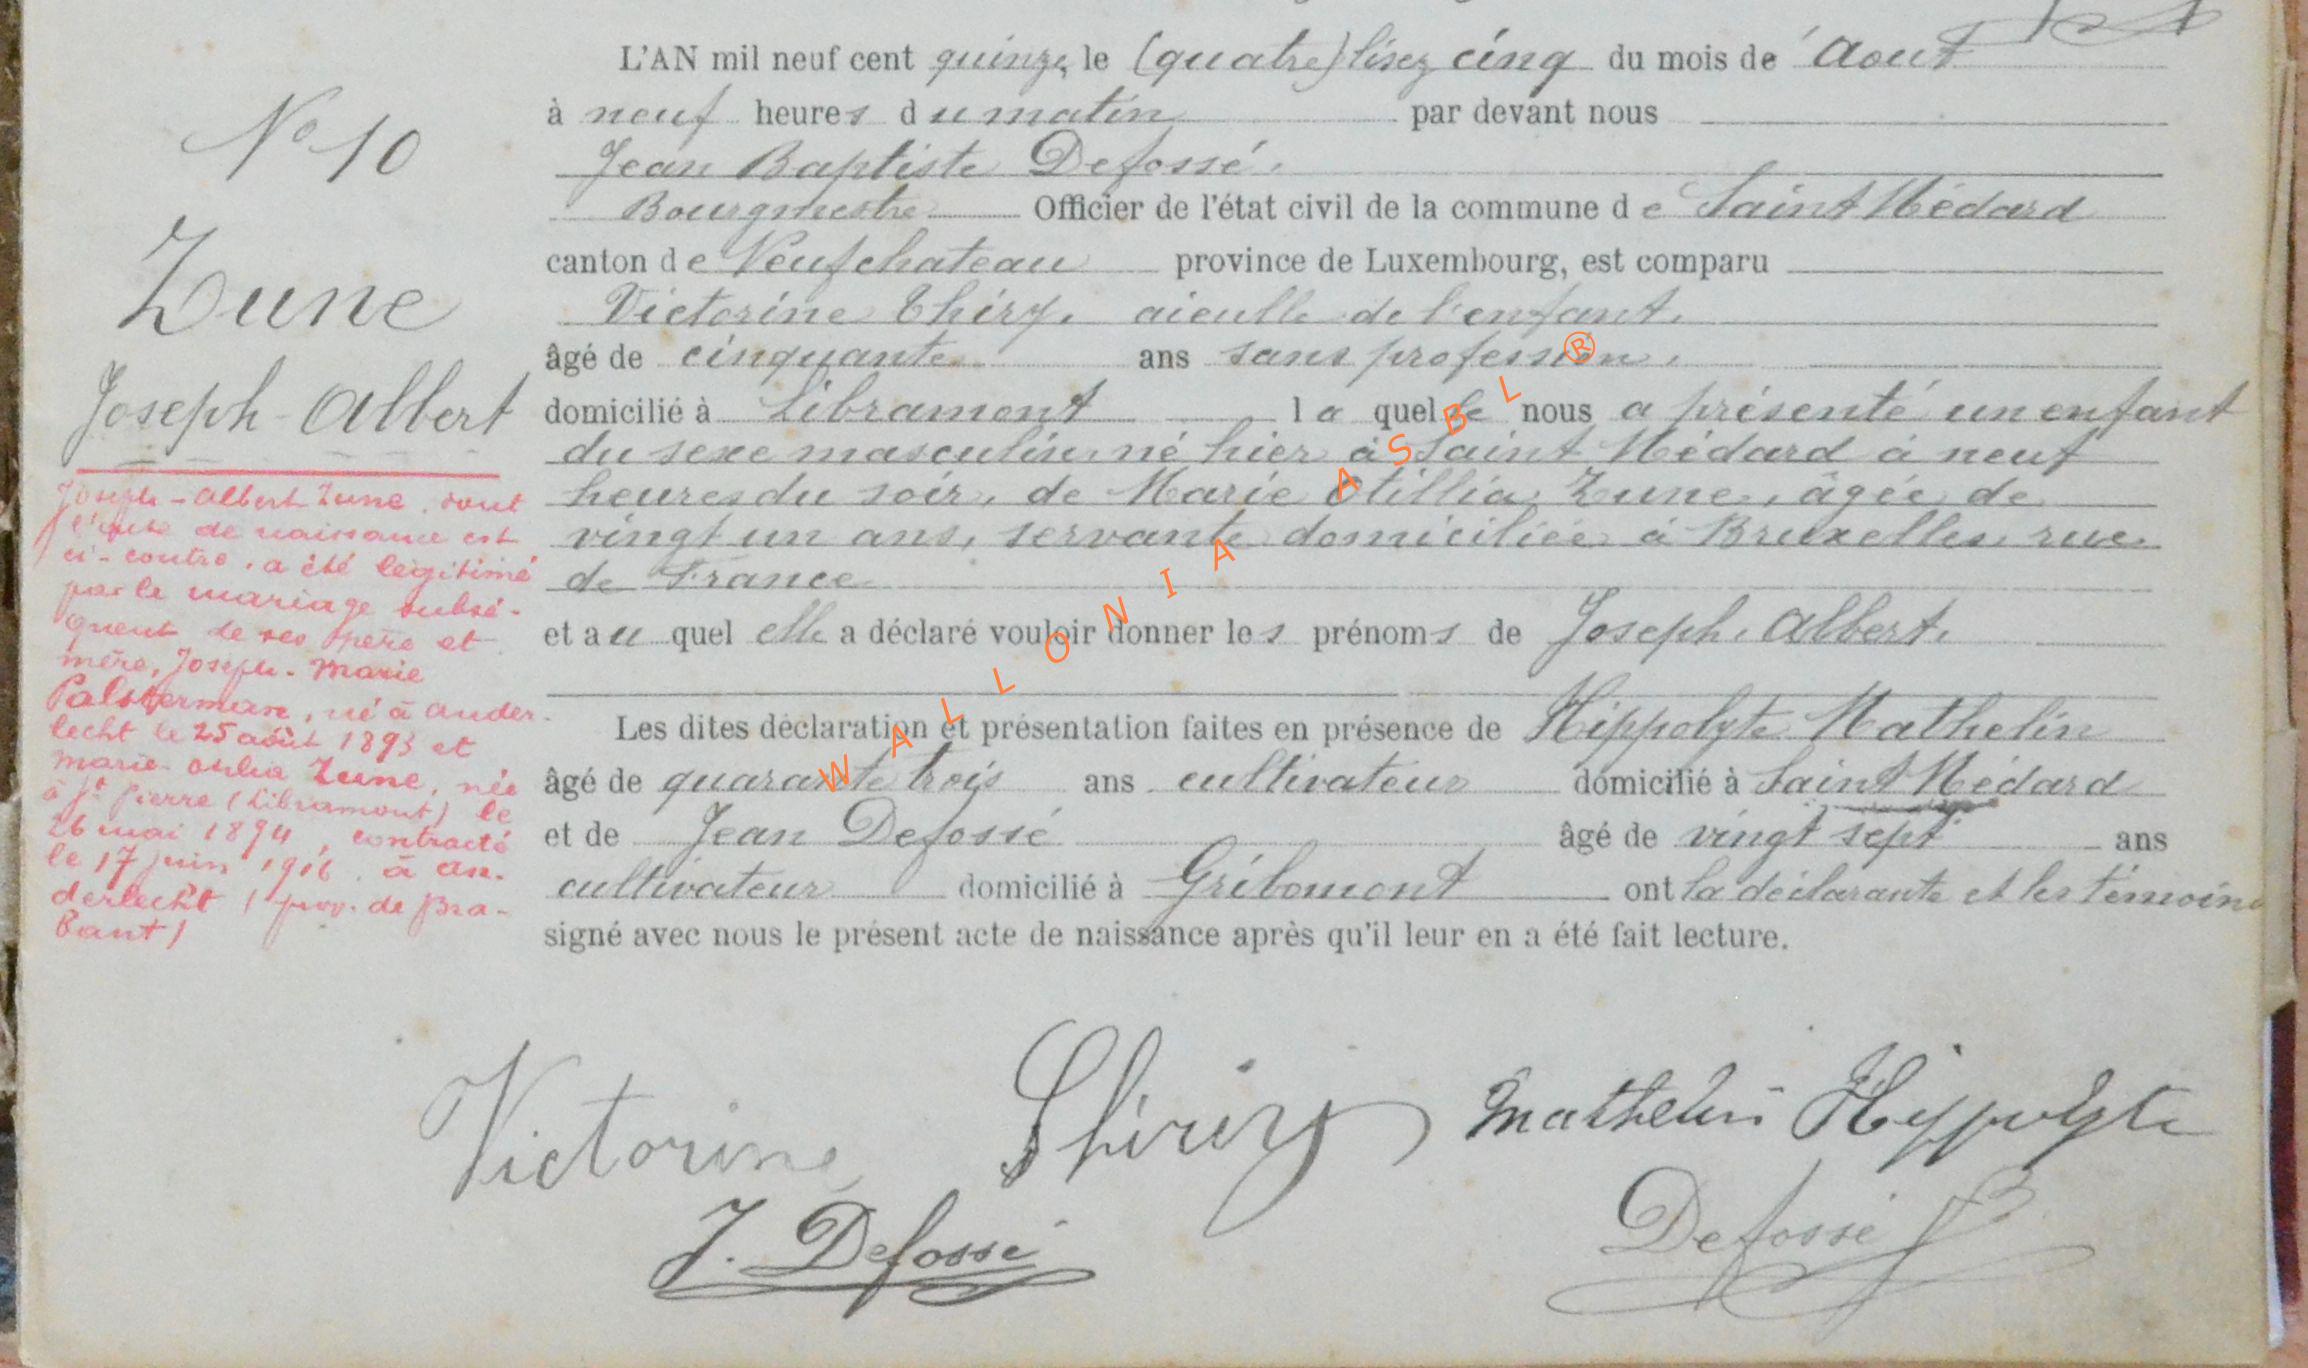 L'AN mil neuf cent quinze, le (quatre) lisez cinq du mois de Aout
à neuf heures du matin par devant nous
Jean Baptiste Defossé.
Bourgmestre Officier de l'état civil de la commune de Saint Médard
canton de Neufchateau province de Luxembourg, est comparu
Victorine Thiry. aieulle de l'enfant.
âgé de cinquante ans sans profession.
domicilié à Libramont laquelle nous a présenté un enfant
du sexe masculin né hier à Saint Médard à neuf
heures du soir, de Marie Otillia Zune, âgée de
vingt un ans, servante domiciliée à Bruxelles rue
de France
et au quel elle a déclaré vouloir donner les prénoms de Joseph. Albert.
Les dites déclaration et présentation faites en présence de Hippolyte Mathelin
âgé de quarante trois ans cultivateur domicilié à Saint Médard
et de Jean Defossé âgé de vingt sept ans
cultivateur domicilié à Gribomont ont la déclarante et les témoins
signé avec nous le présent acte de naissance après qu'il leur en a été fait lecture.
No 10
Zune
Joseph-Albert
Joseph-Albert Zune, dont
l'acte de naissance est
ci-contre, a été légitimé
par le mariage subsé-
quent de ses père et
mère, Joseph-Marie
Palsterman, né à Ander-
lecht le 25 août 1893 et
Marie Zune, née
à St Pierre (Libramont) le
26 mai 1894, contracté
le 17 juin 1916 à An-
derlecht (prov. de Bra-
bant)
Victorine Thiriy
Mathelin Hippolyte
J. Defossé
Defossé JB
WALLONIA ASBL ®